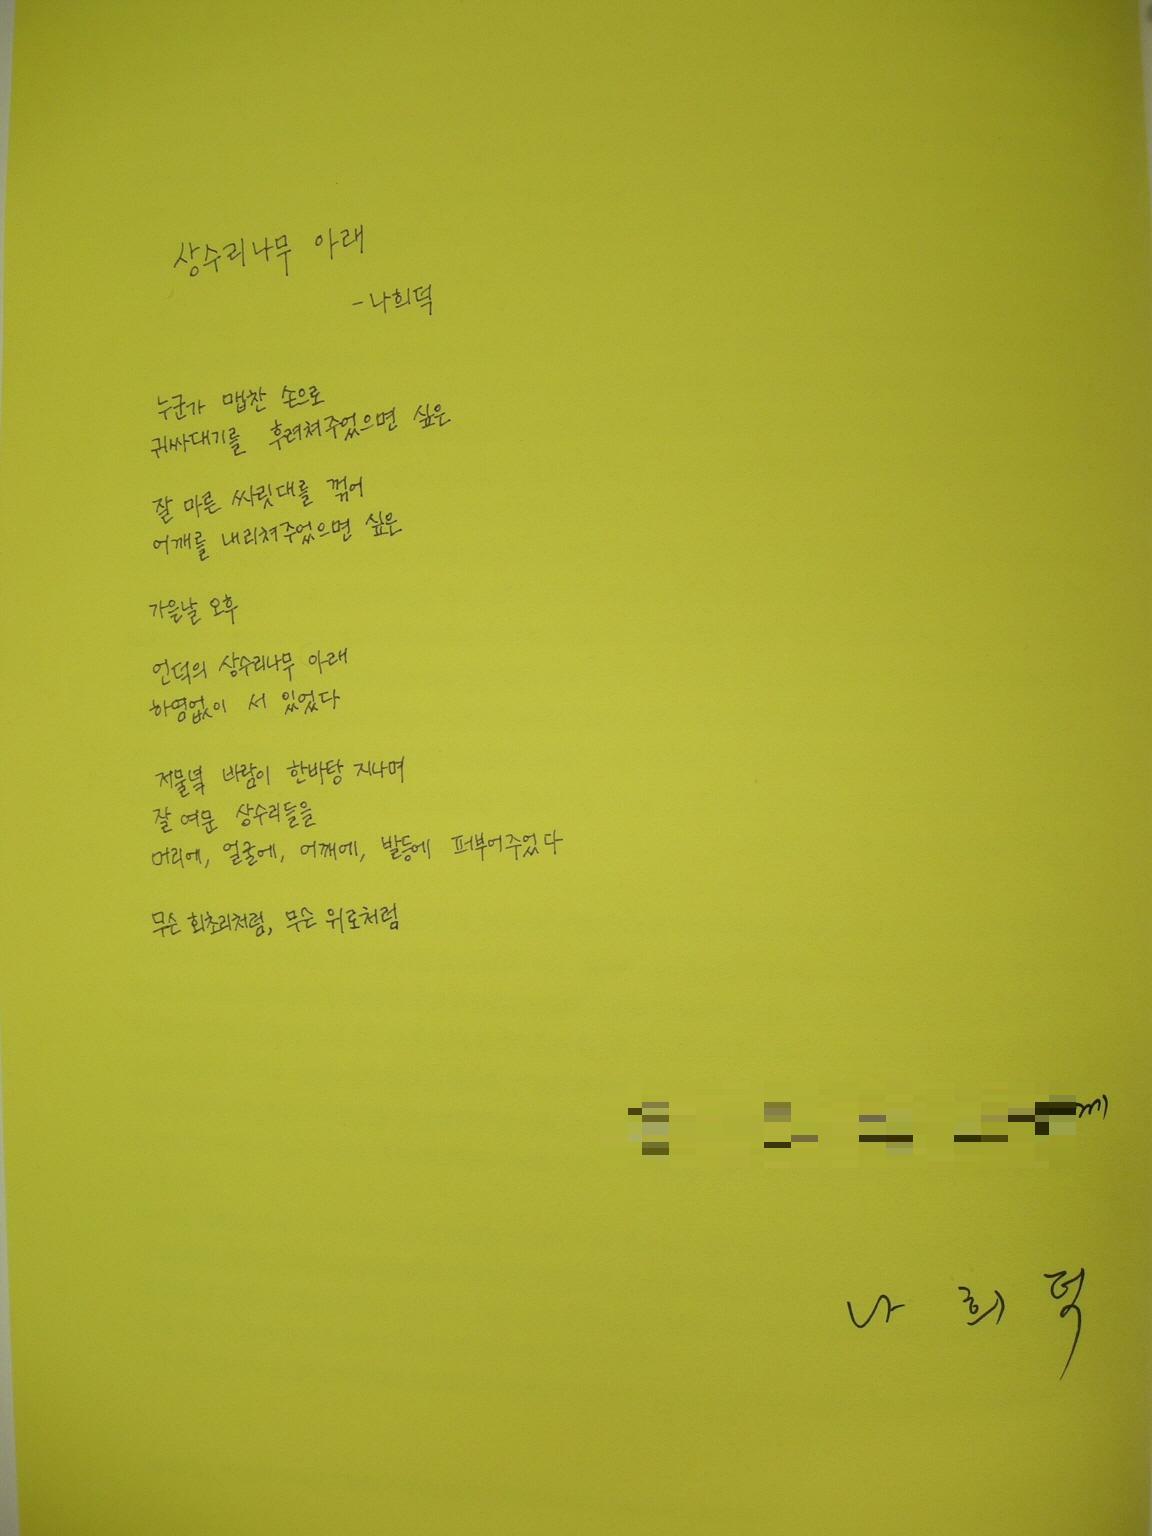 상수리나무 아래
-나희덕
누군가 맵찬 손으로
귀싸대기를 후려쳐주었으면 싶은
잘 마른 싸릿대를 꺾어
어깨를 내리쳐주었으면 싶은
가을날 오후
언덕의 상수리나무 아래
하염없이 서 있었다
저물녘 바람이 한바탕 지나며
잘 여문 상수리들을
머리에, 얼굴에, 어깨에, 발등에 퍼부어주었다
무슨 회초리처럼, 무슨 위로처럼
께
나 희 덕